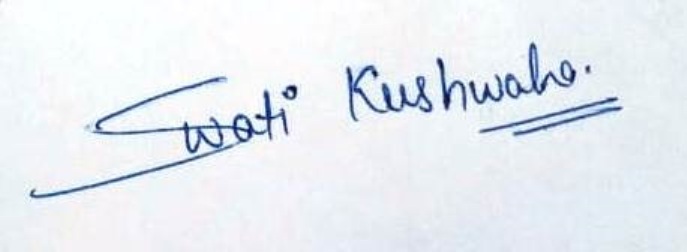 Swati Kushwaha.